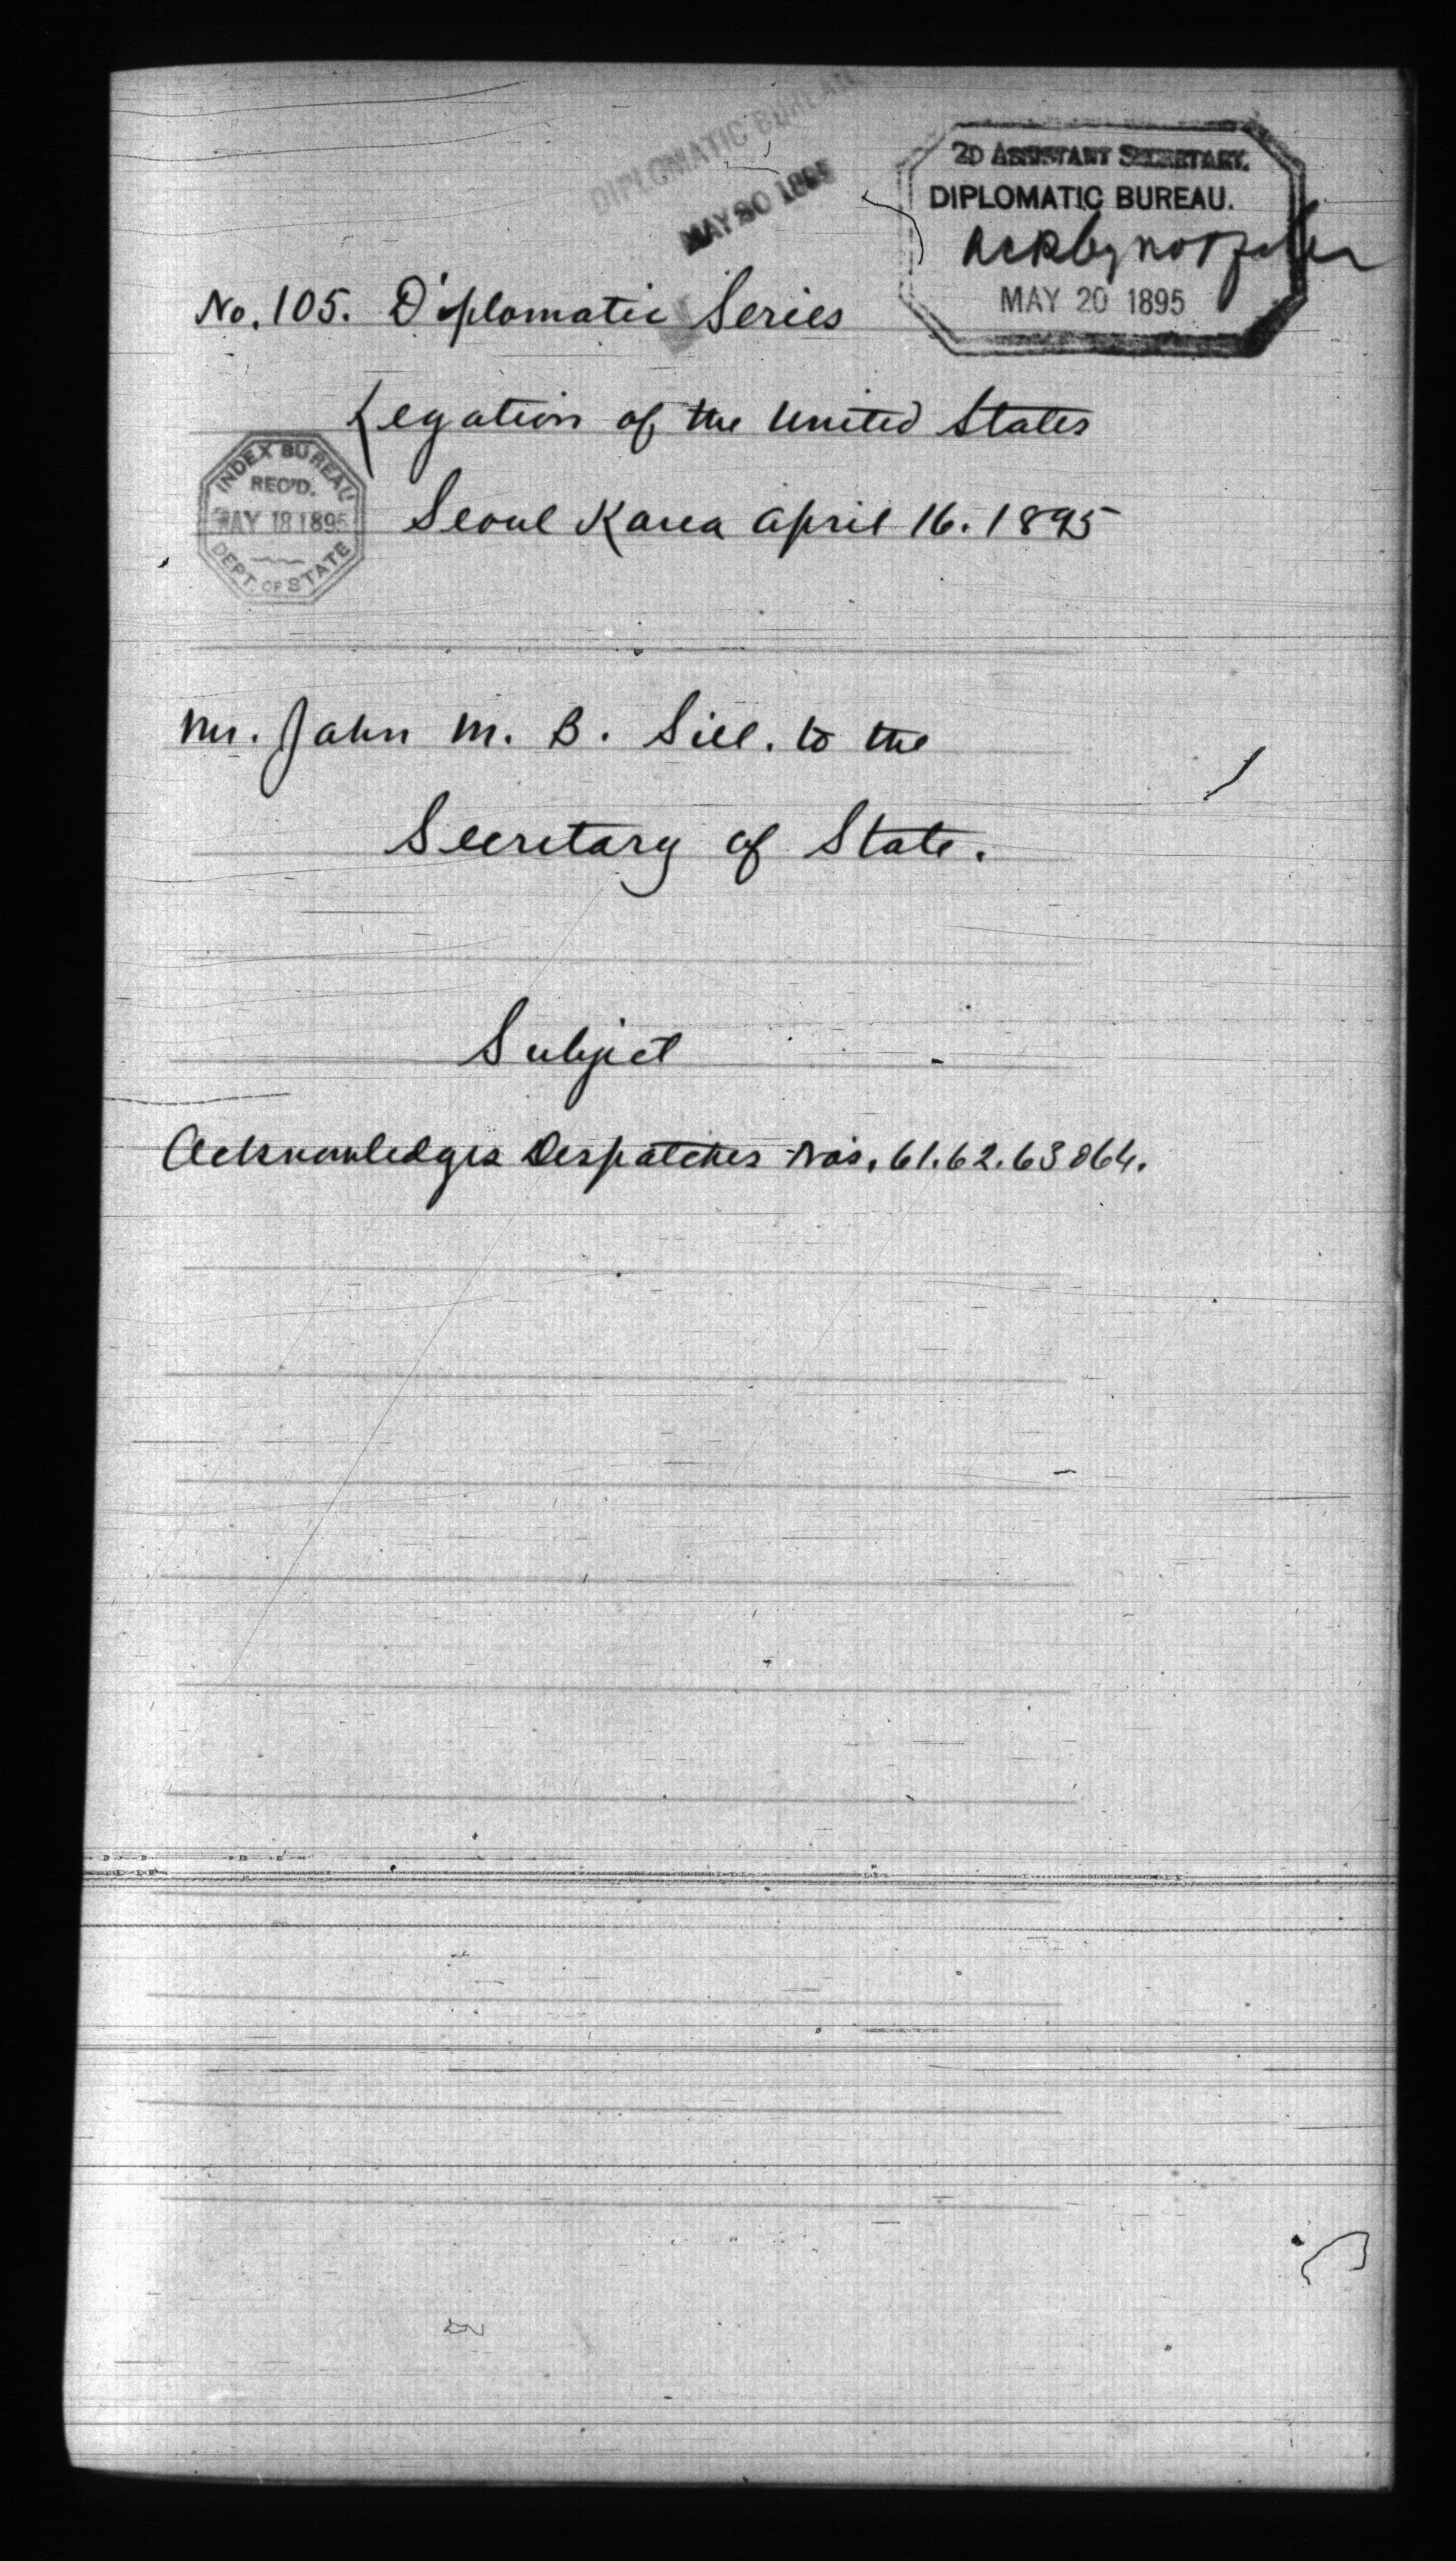 DIPLOMATIC BUREAU
MAY 20 1895
2D ASSISTANT SECRETARY.
DIPLOMATIC BUREAU.
MAY 20 1895
No. 105. Diplomatic Series
Legation of the United States
INDEX BUREAU
REC'D.
MAY 18 1895
DEPT. OF STATE
Seoul Korea April 16. 1895
Mr. John M. B. Sill. to the
Secretary of State.
Subject
Acknowledges Despatches Nos. 61. 62. 63 & 64.